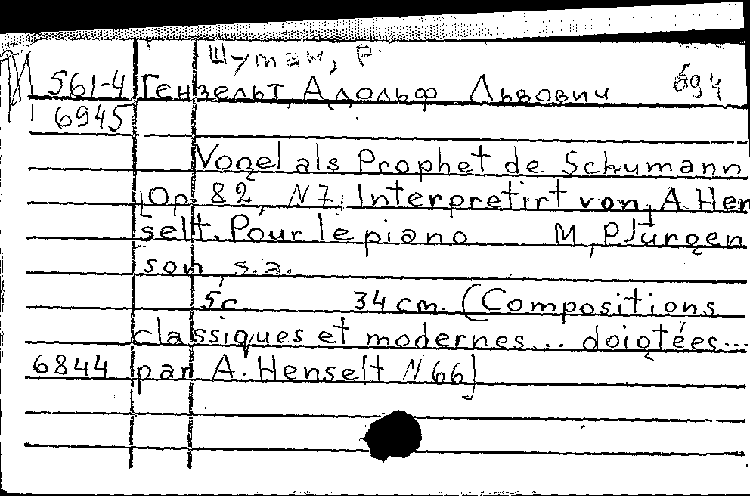 Шуман, Р
561-4 Гензельт, Адольф Львович 694
6945
Vogel als Prophet de Schumann
[Op. 82, N 7. Interpretirt von A. Hen
selt. Pour le piano M, P. Jurgen
son, s.a.
5c 34 cm. (Compositions
classiques et modernes... doigtées...
6844 par A. Henselt N 66]